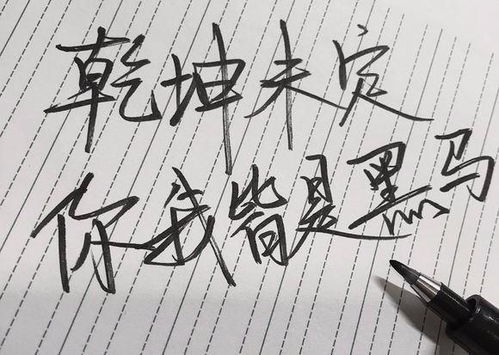 乾坤未定
你我皆是黑马